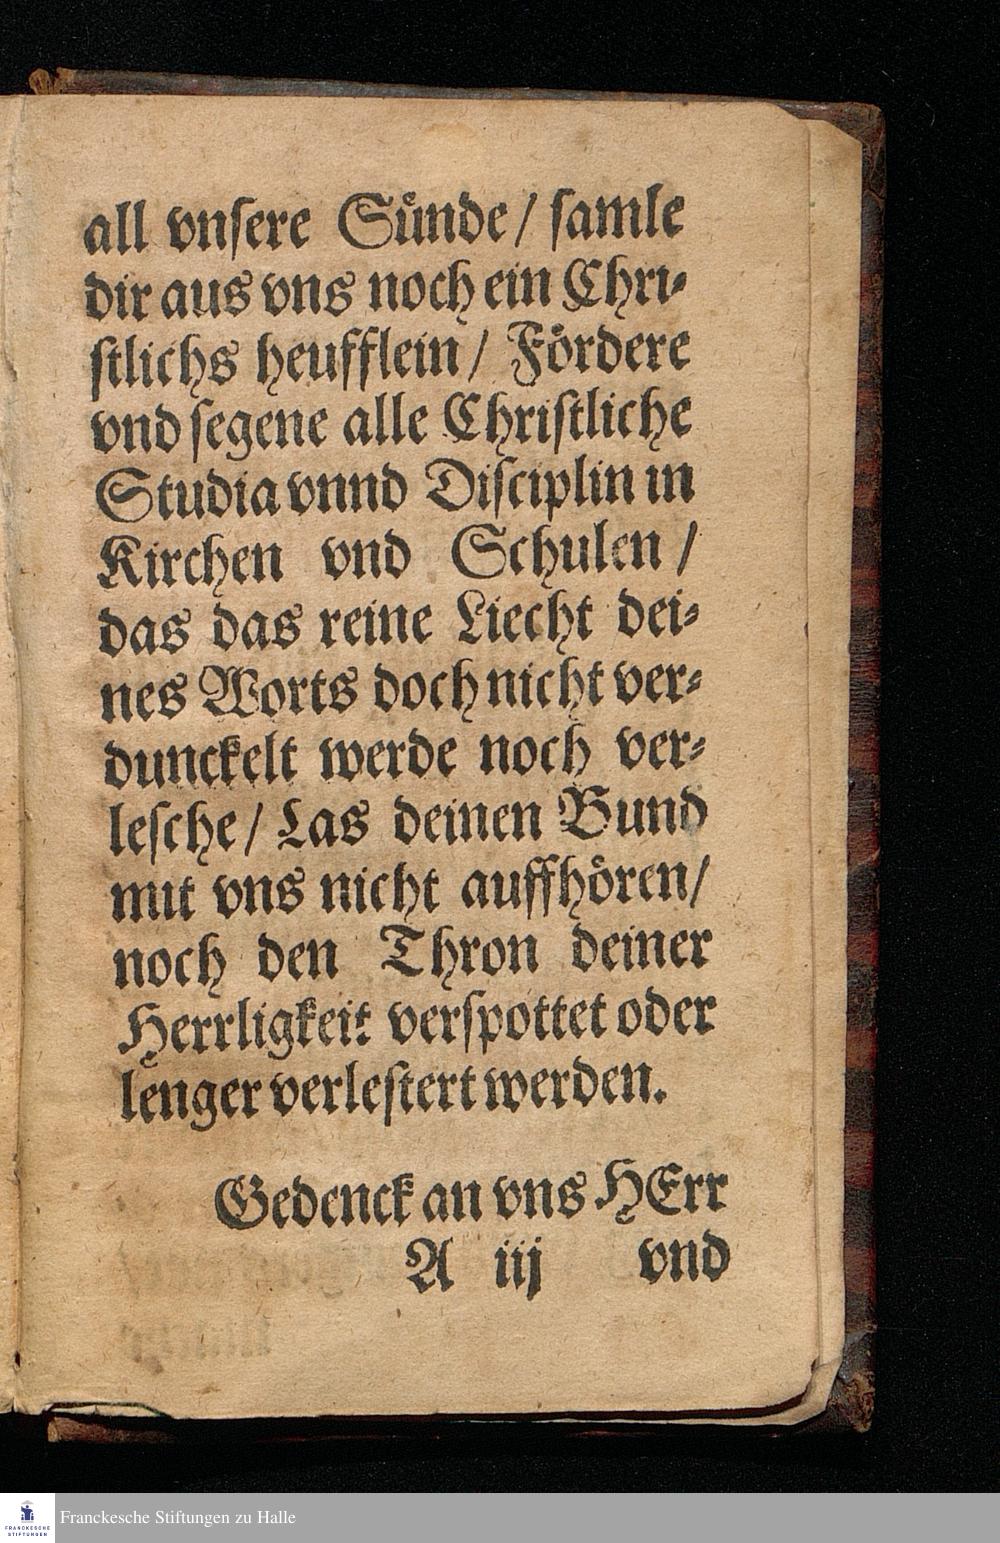 all vnſere Suͤnde/ ſamle
dir aus vns noch ein Chri⸗
ſtlichs heufflein/ Foͤrdere
vnd ſegene alle Chriſtliche
Studia vnnd Diſciplin in
Kirchen vnd Schulen/
das das reine Liecht dei⸗
nes Worts doch nicht ver⸗
dunckelt werde noch ver⸗
leſche/ Las deinen Bund
mit vns nicht auffhoͤren/
noch den Thron deiner
Herrligkeit verſpottet oder
lenger verleſtert werden.
Gedenck an vns HErr
A iij vnd
FRANCKESCHE
STIFTUNGEN
Franckesche Stiftungen zu Halle